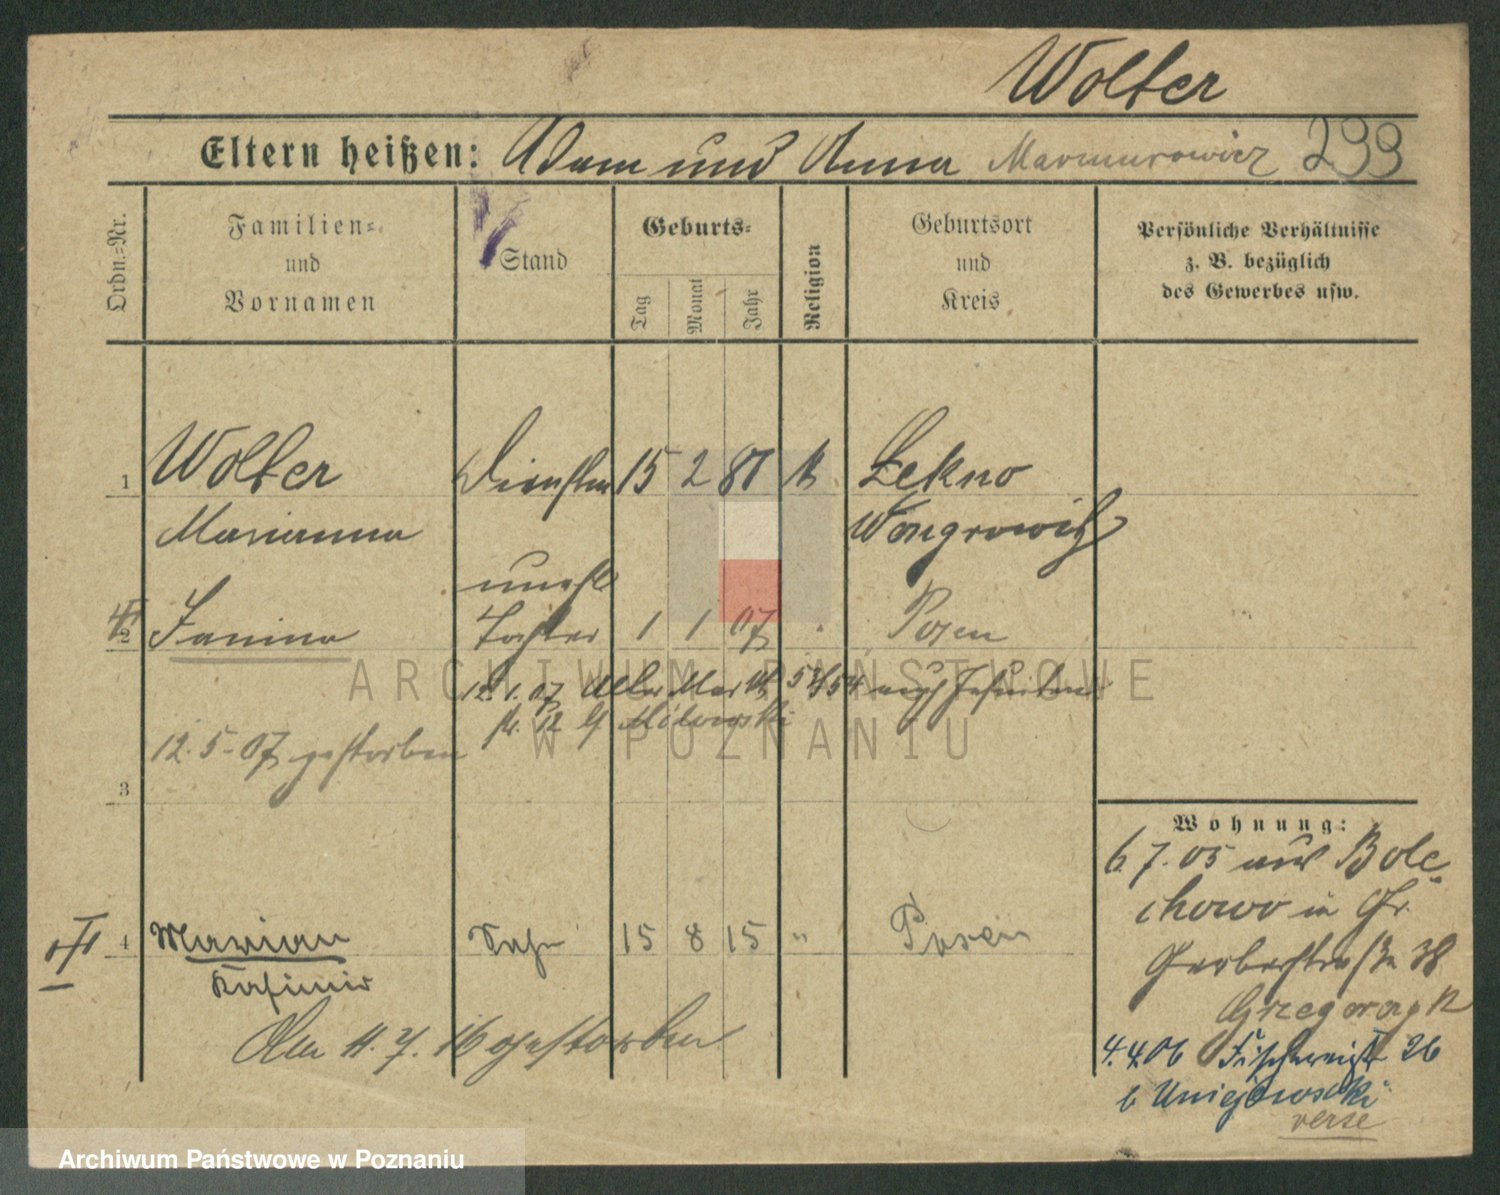 Wolter
Eltern heißen: Adam und Anna Marmurowicz 299
Ordn.=Nr.
Familien=
und
Vornamen
Stand
Geburts=
Tag
Monat
Jahr
Religion
Geburtsort
und
Kreis
Persönliche Verhältnisse
z. B. bezüglich
des Gewerbes usw.
1 Wolter 15 2 k Łekno
Marianna Wongrowitz
unehl
2 Janina Tochter 1 1 07 " Posen
12.1.07 Alter Markt 53/54
12.5.07 gestorben
3
Wohnung:
6.7.05 aus Bole=
chowo in Gr.
Gerberstraße 38
Grzegorzyk
4 Marian Sohn 15 8 15 " Posen
Kasimir
Am 11.7.16 gestorben
4.4.06 Fischereistr 26
b Uniejewski
verse
ARCHIWUM PAŃSTWOWE
W POZNANIU
Archiwum Państwowe w Poznaniu